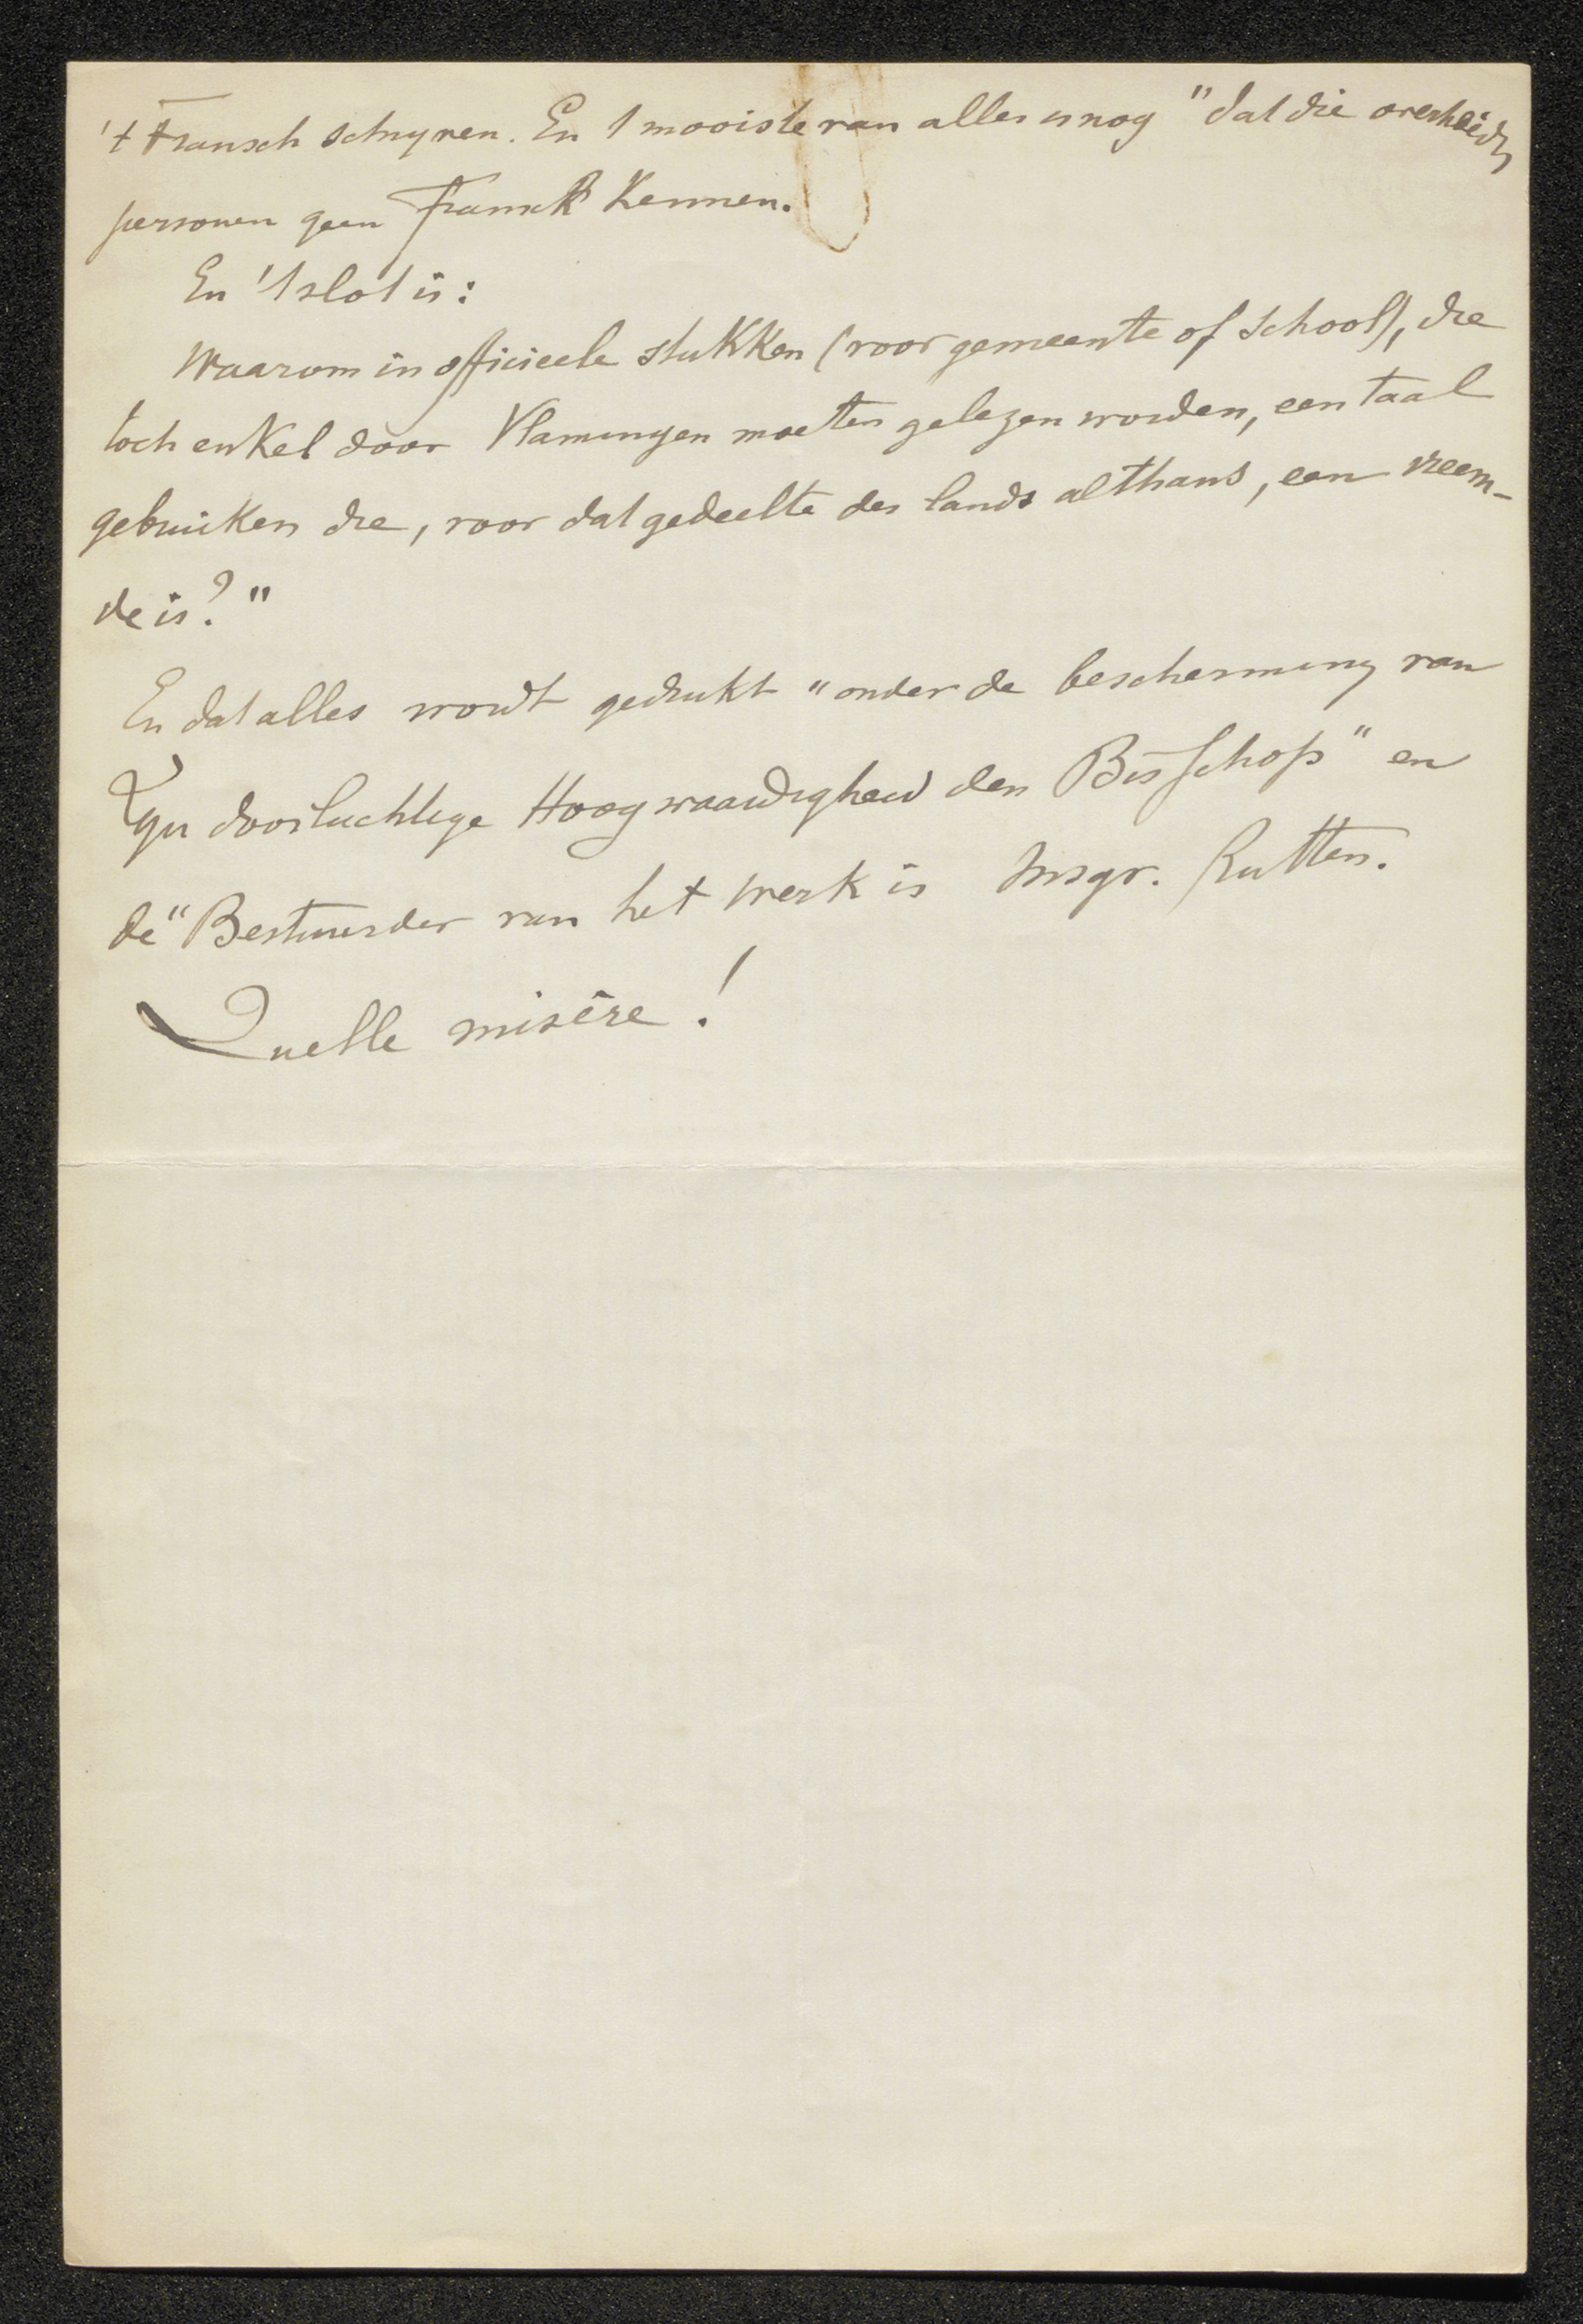 't Fransch schryven. En 't mooiste van alles is nog "dat die overheids
personen geen Fransch kennen.
En 't slot is:
Waarom in officieele stukken (voor gemeente of school), die
toch enkel door Vlamingen moeten gelezen worden, een taal
gebruiken die, voor dat gedeelte des lands althans, een vreem-
de is?"
En dat alles wordt gedrukt "onder de bescherming van
Zyn doorluchtige Hoogwaardigheid den Bisschop" en
de "Bestuurder van het werk is Msgr. Rutten.
Quelle misère!